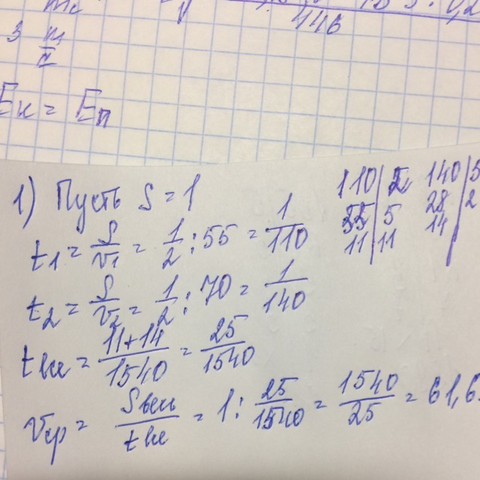 446
3 м/с
Eк = Eп
1) Пусть S = 1
t1 = S/v1 = 1/2 : 55 = 1/110
t2 = S/v2 = 1/2 : 70 = 1/140
tвс = 11+14/1540 = 25/1540
vср = Sвс/tвс = 1 : 25/1540 = 1540/25 = 61,6
110 | 2 140 | 5
55 | 5 28 | 2
11 | 11 14